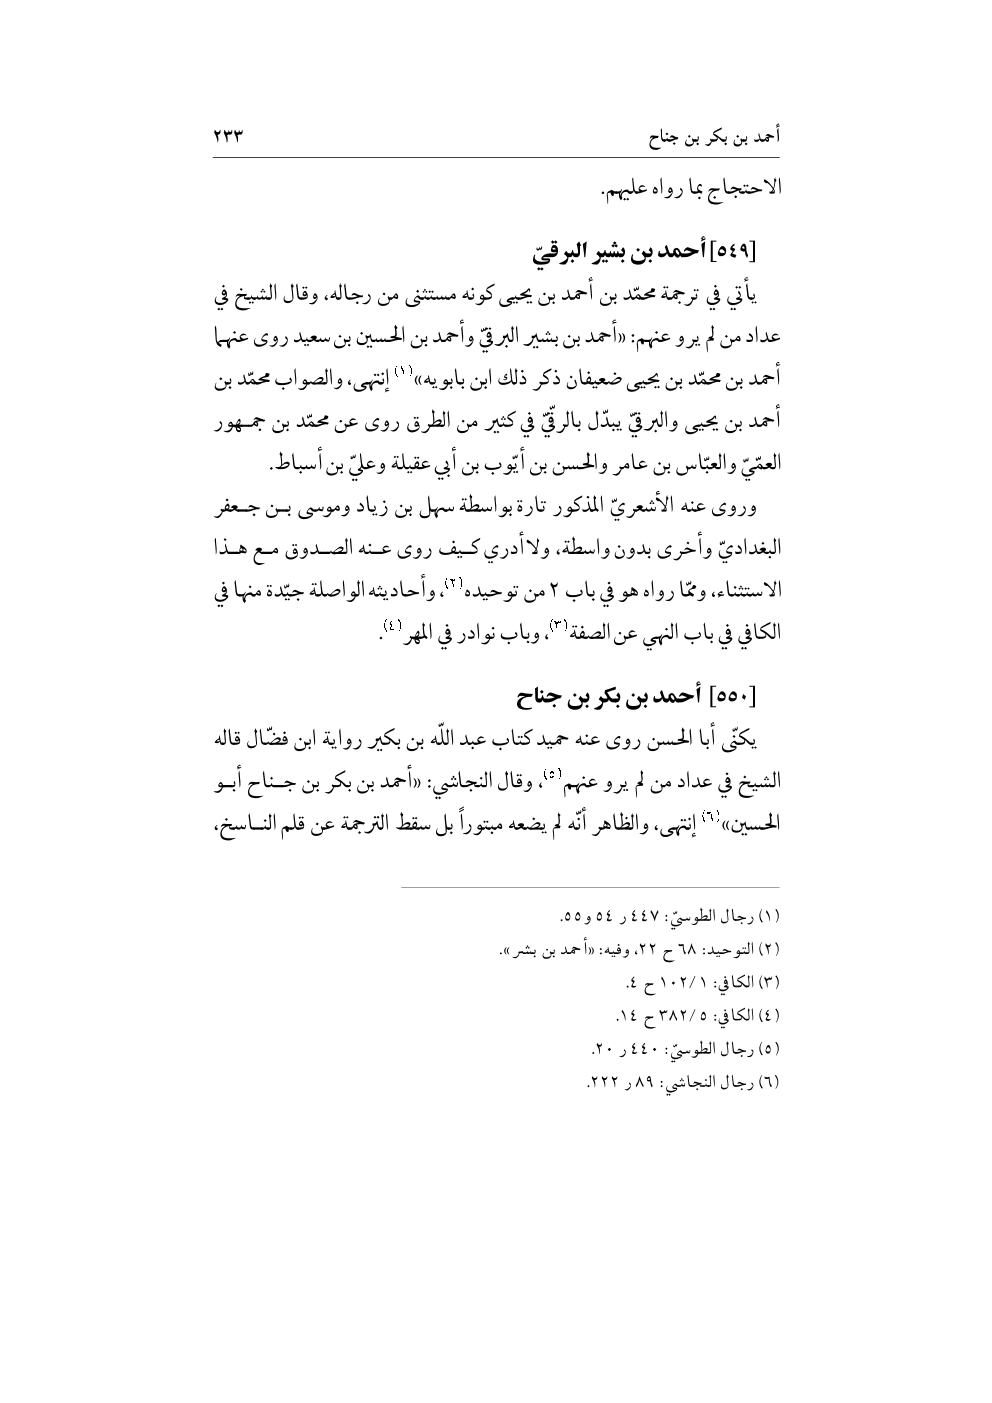 أحمد بن بكر بن جناح ٢٣٣
الاحتجاج بما رواه عليهم.
[٥٤٩] أحمد بن بشير البرقيّ
يأتي في ترجمة محمّد بن أحمد بن يحيى كونه مستثنى من رجاله، وقال الشيخ في
عداد من لم يرو عنهم: «أحمد بن بشير البرقيّ وأحمد بن الحسين بن سعيد روى عنهما
أحمد بن محمّد بن يحيى ضعيفان ذكر ذلك ابن بابويه»(١) إنتهى، والصواب محمّد بن
أحمد بن يحيى والبرقيّ يبدّل بالرقّيّ في كثير من الطرق روى عن محمّد بن جمـهور
العمّيّ والعبّاس بن عامر والحسن بن أيّوب بن أبي عقيلة وعليّ بن أسباط.
وروى عنه الأشعريّ المذكور تارة بواسطة سهل بن زياد وموسى بـن جـعفر
البغداديّ وأخرى بدون واسطة، ولا أدري كـيف روى عـنه الصـدوق مـع هـذا
الاستثناء، وممّا رواه هو في باب ٢ من توحيده(٢)، وأحاديثه الواصلة جيّدة منها في
الكافي في باب النهي عن الصفة(٣)، وباب نوادر في المهر(٤).
[٥٥٠] أحمد بن بكر بن جناح
يكنّى أبا الحسن روى عنه حميد كتاب عبد اللّه بن بكير رواية ابن فضّال قاله
الشيخ في عداد من لم يرو عنهم(٥)، وقال النجاشي: «أحمد بن بكر بن جـناح أبـو
الحسين»(٦) إنتهى، والظاهر أنّه لم يضعه مبتوراً بل سقط الترجمة عن قلم النـاسخ،
(١) رجال الطوسيّ: ٤٤٧ ر ٥٤ و ٥٥.
(٢) التوحيد: ٦٨ ح ٢٢، وفيه: «أحمد بن بشر».
(٣) الكافي: ١٠٢/١ ح ٤.
(٤) الكافي: ٣٨٢/٥ ح ١٤.
(٥) رجال الطوسيّ: ٤٤٠ ر ٢٠.
(٦) رجال النجاشي: ٨٩ ر ٢٢٢.